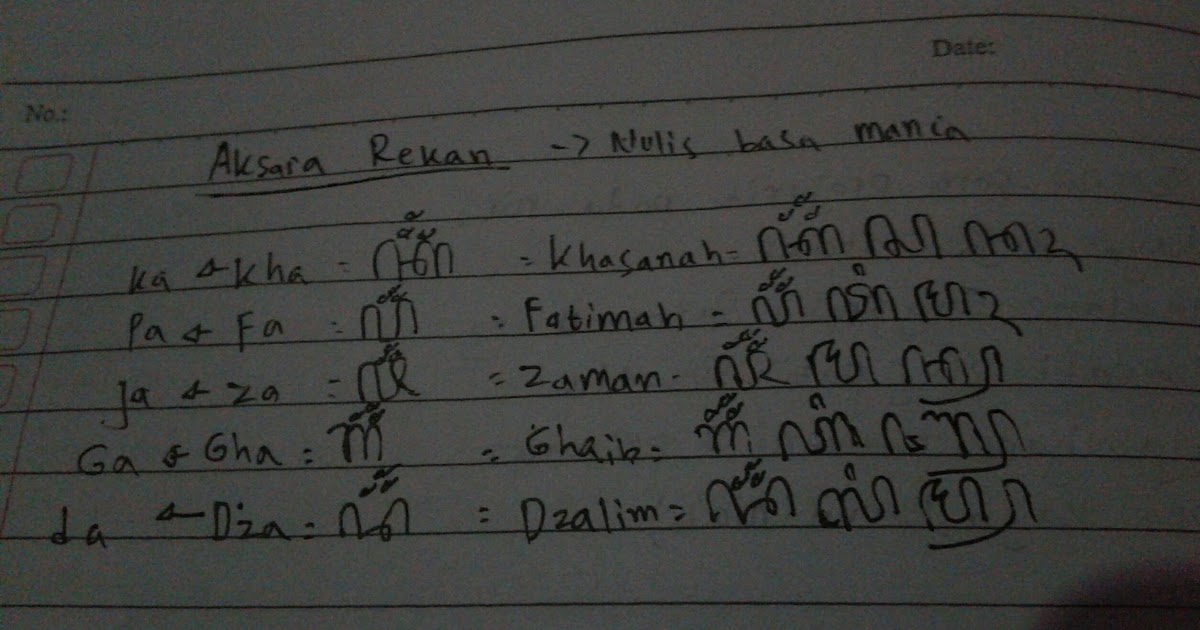 Date:
No.:
Aksara Rekan -> Nulis basa manca
ka + kha = ꦏ꦳ = Khasanah = ꦏ꦳ꦱꦤꦃ
Pa + Fa = ꦥ꦳ = Fatimah = ꦥ꦳ꦠꦶꦩꦃ
ja + za = ꦗ꦳ = Zaman = ꦗ꦳ꦩꦤ꧀
Ga + Gha = ꦒ꦳ = Ghaib =
da + Dza = ꦢ꦳ = Dzalim = ꦢ꦳ꦭꦶꦩ꧀